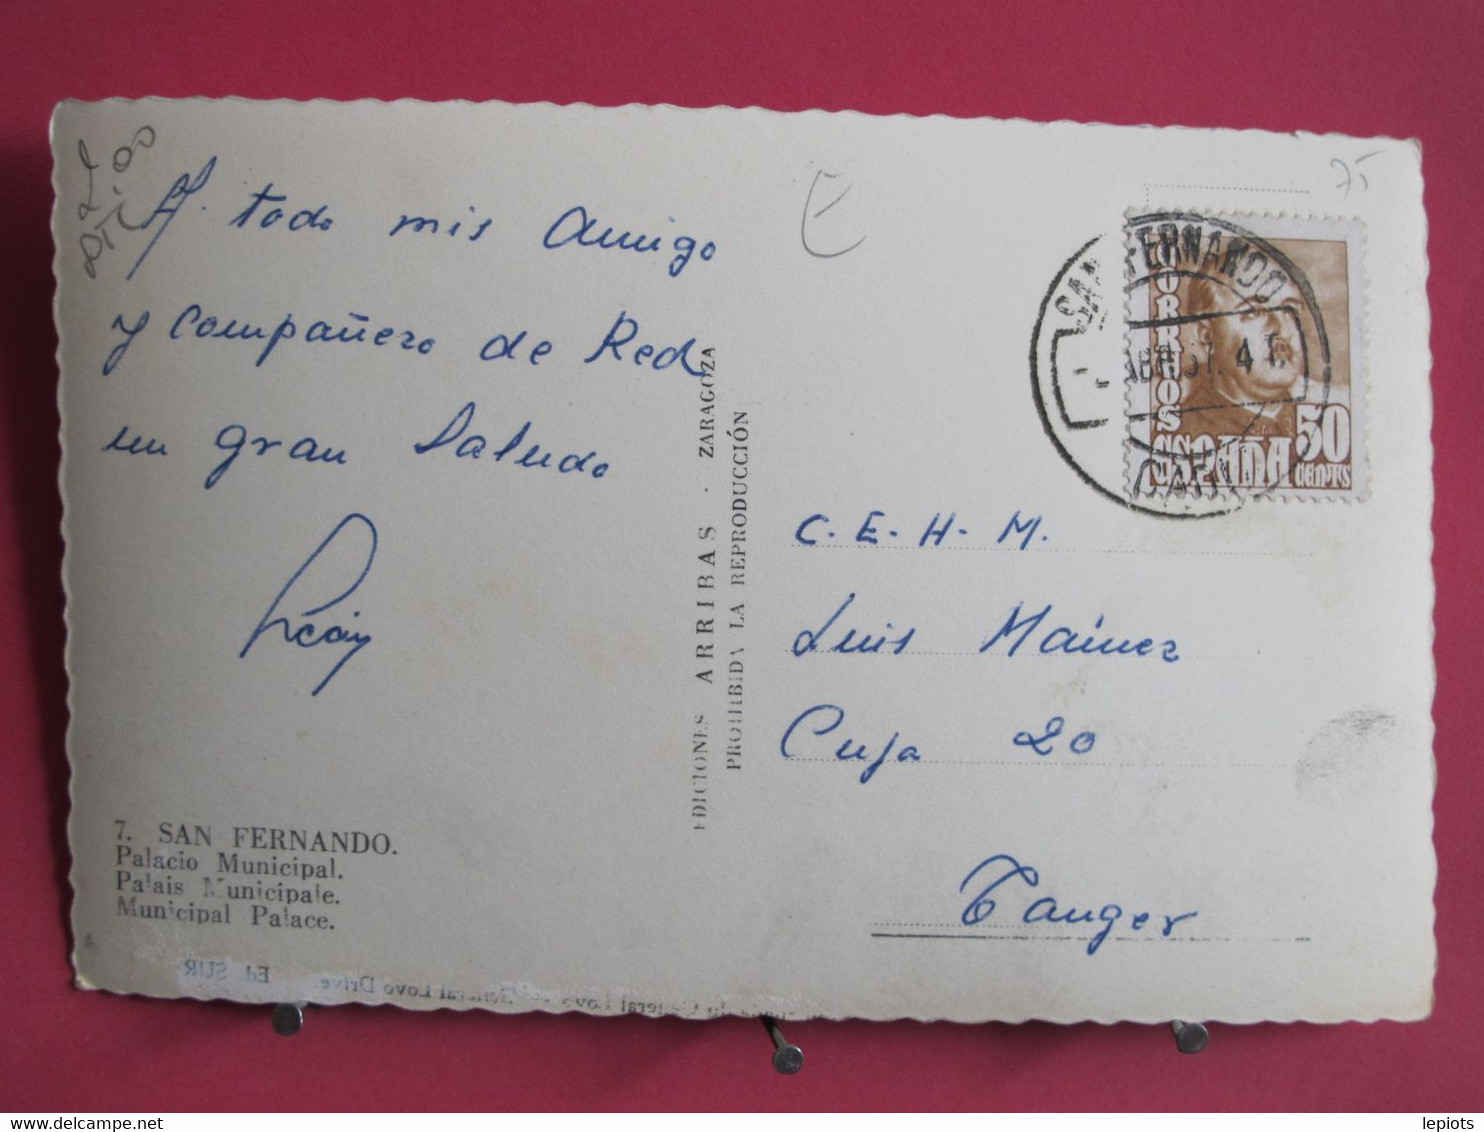 A. todo mis amigo
y compañero de Red
un gran saludo
7. SAN FERNANDO.
Palacio Municipal.
Palais Municipale.
Municipal Palace.
EDICIONES ARRIBAS · ZARAGOZA
PROHIBIDA LA REPRODUCCIÓN
E
75
SAN FERNANDO
ABR. 51. 4
CADIZ
CORREOS
ESPAÑA
50
CENTS
C. E. H. M.
Luis Maínez
Caja 20
Tanger
Ed. SUR
General Lovo Drive
lepiots